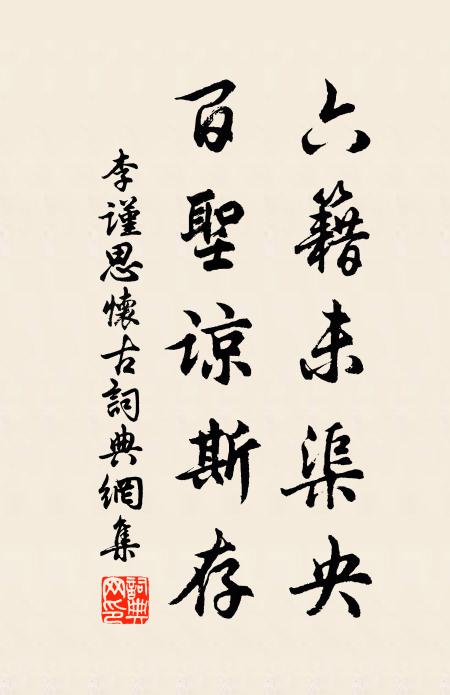 六籍未渠央
百聖諒斯存
李謹思懷古詞典網集
詞典網印